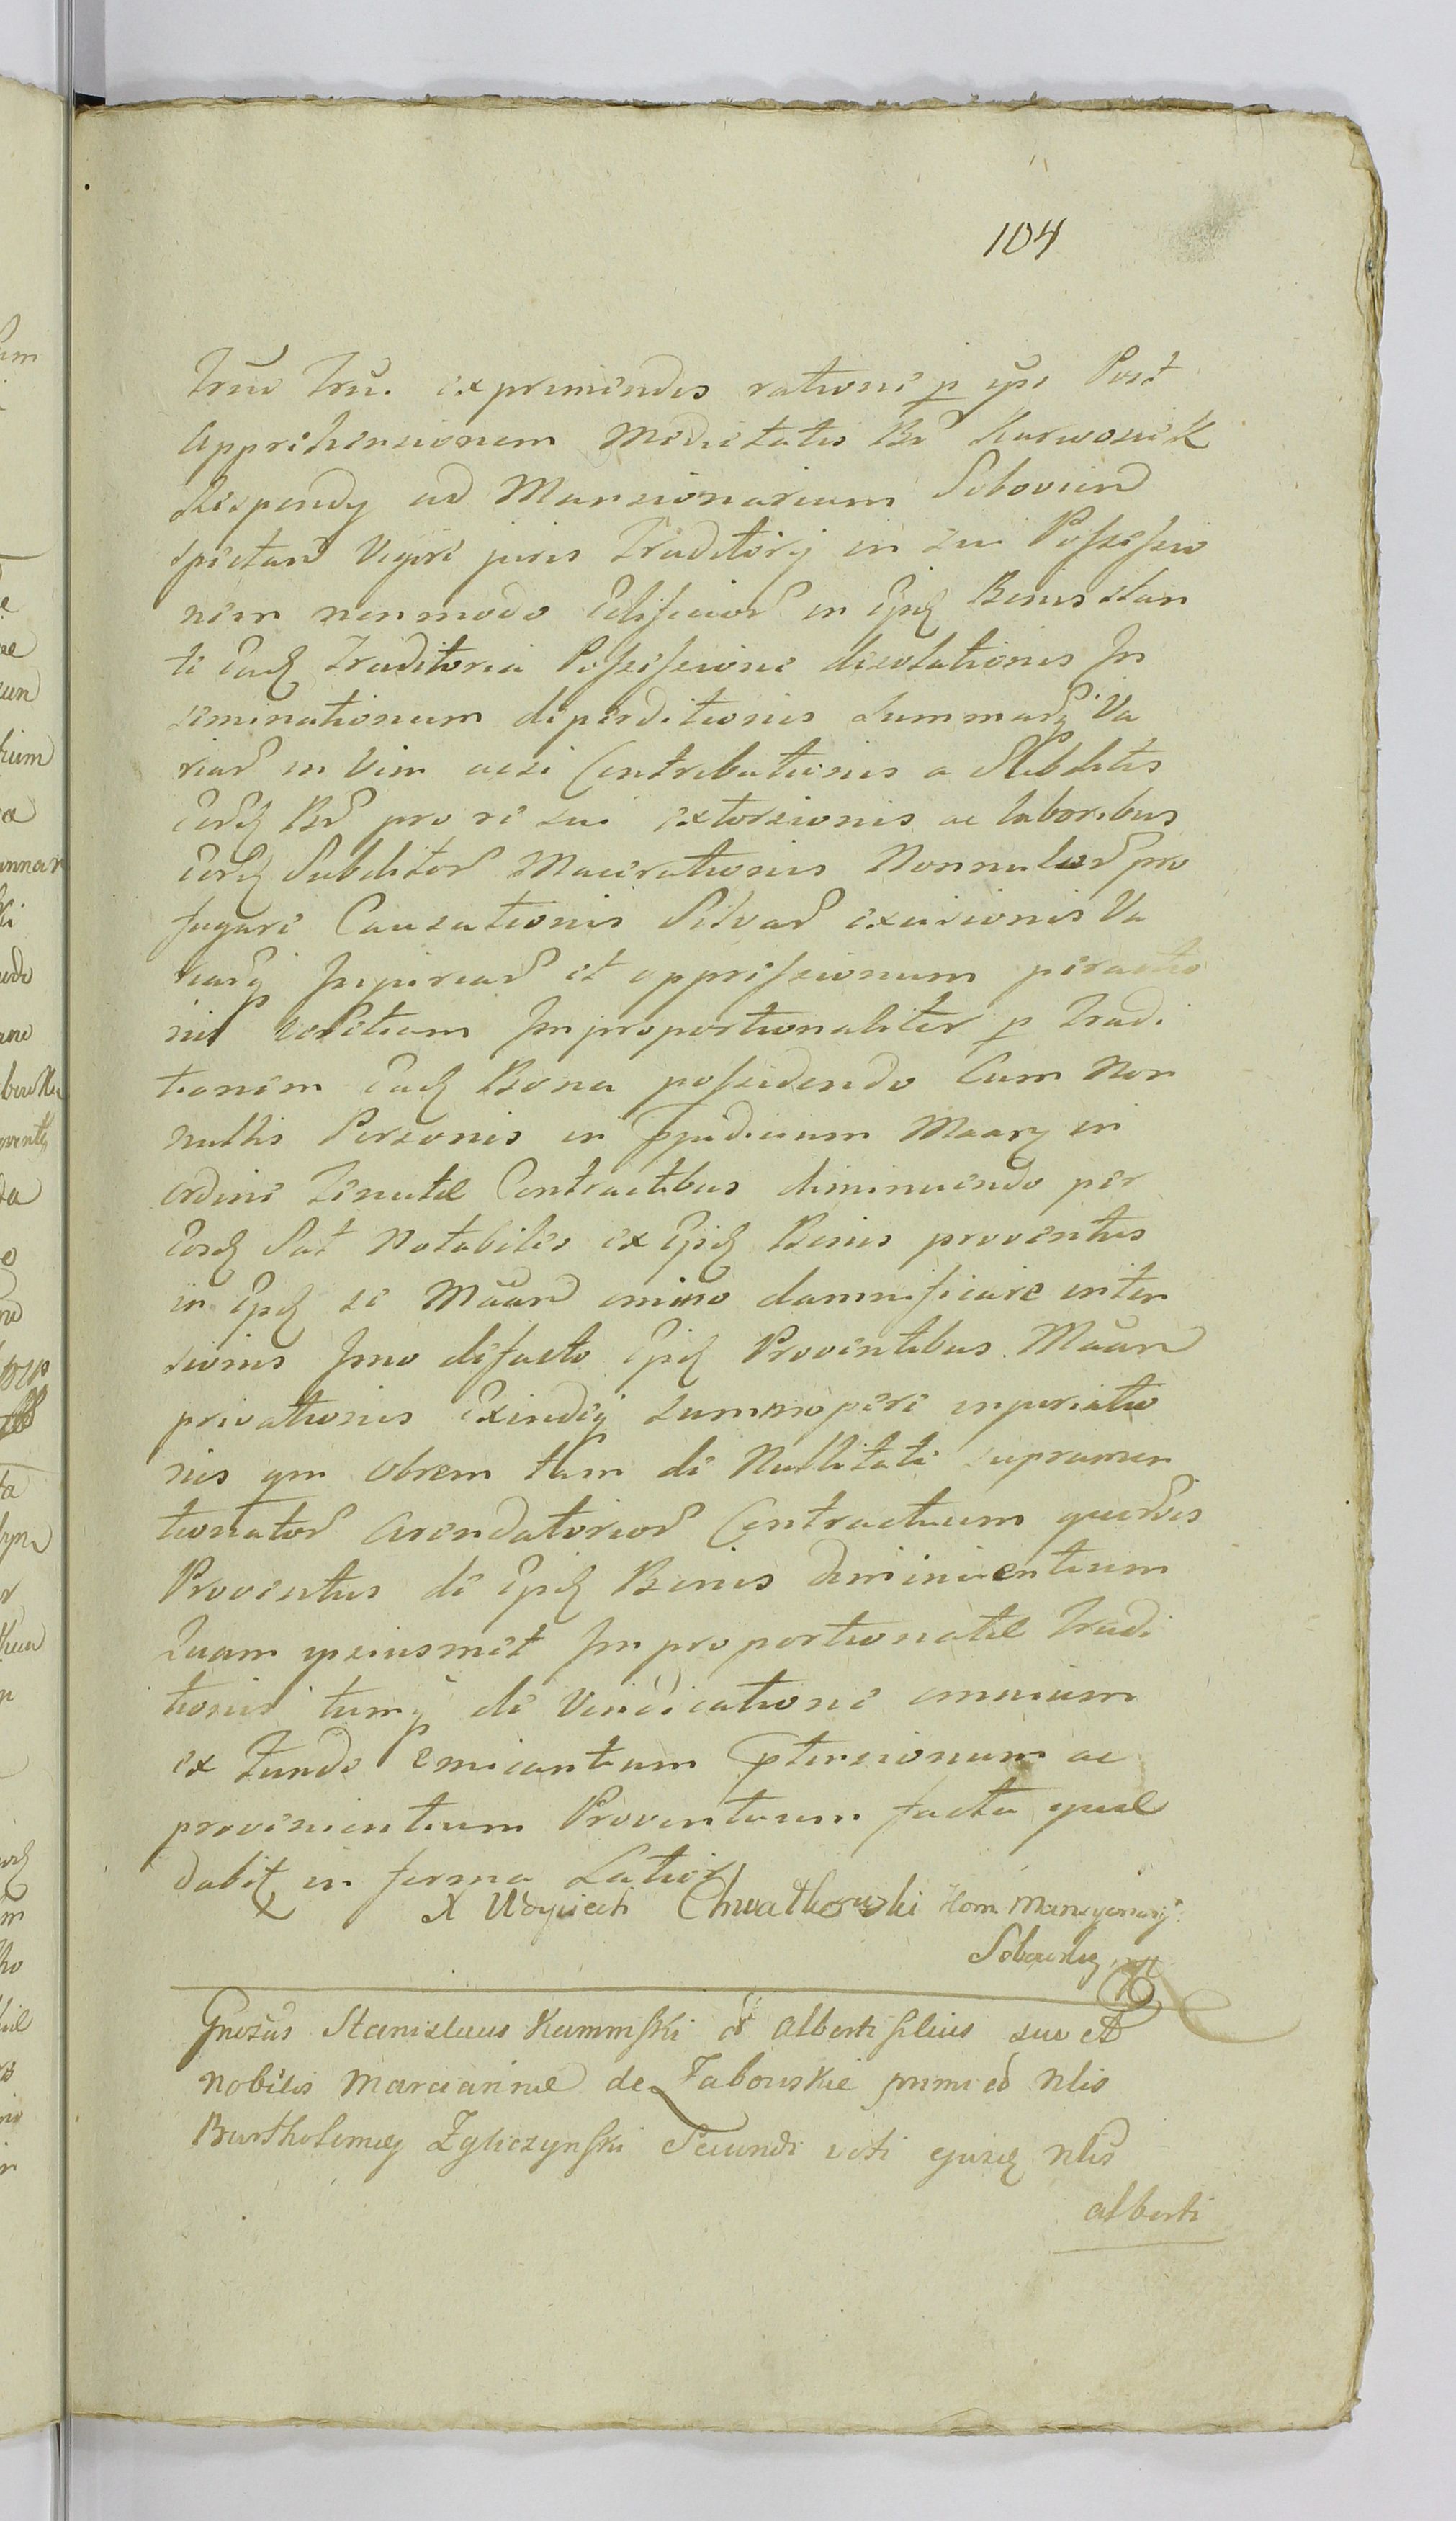 104
Trũo Trũ. exprimendis ratione p ips Post
Apprehensionem Medietatis Br̃ Karwosiek
Stipendy ad Mansionariam Sobovien̄
spectan̄ Vigore juris Traditorij in sui Possessio
nem nonmodo Edificior̃ in Eisd̨ Bonis stan
te Ead̨ Traditoria Possessione desolationis In
seminationum deperditionis Summarq̨ Va
riar̃ in Vim aesi Contributionis a Subditis
Eord̨ Br̃ pro re sui extorsionis ac laboribus
Eord̨ Subditor̃ Macerationis Nonnulor̃ pro
fugare Causationis Silvar̃ excisionis Va
riarq̨ Injuriar̃ et oppressionum peractio
nis Improportionaliter p Tradi
tionem Ead̨ Bona possidendo Cum Non
nullis Personis in Ppudicium Maary in
ordine Tenutel Contractibus diminuendo per
Eosd̨ Sat Notabiles ex Eisd̨ Bonis proventus
in Eisd̨ se Maan̄ animo damnificare inten
sionis Imo defacto Eisd̨ Proventibus Maan̄
privationis Exindeq̨ summopere injuriatio
nis qm Obrem tam de Nullitate supramen
tionator̃ Arendatorior̃ Contractuum quorvis
Proventus de Eisd̨ Bonis diminuentium
Quam ipsiusmet Improportionatel Tradi
tionis tumq̨ de Vindicatione omnium
ex Fundo Emicantium Ptensionum ac
provenientium Proventuum facta qual
dabit̨ in forma Latior̃
X Woyciech Chwatkowski Kom Mansyonarij
Sobowsky mp
Gnẽsus Stanislaus Kaminski ol Alberti filius suo et
nobilis Mariannæ de Zabouskie primi ed Nlis
Bartholemey Zgliczynski Secundi voti ejusd̨ Nlis
alberti